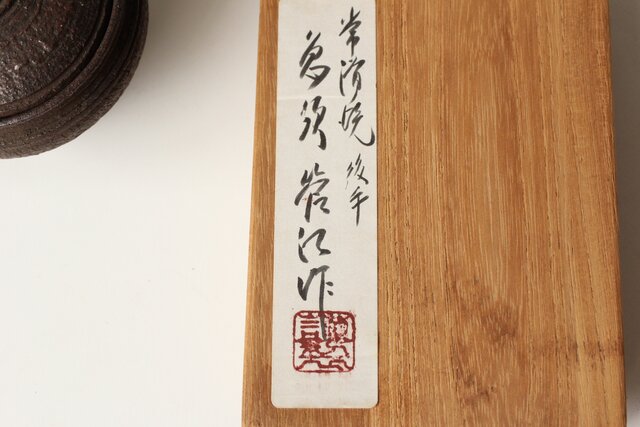 常滑焼 後手
急須 管江作